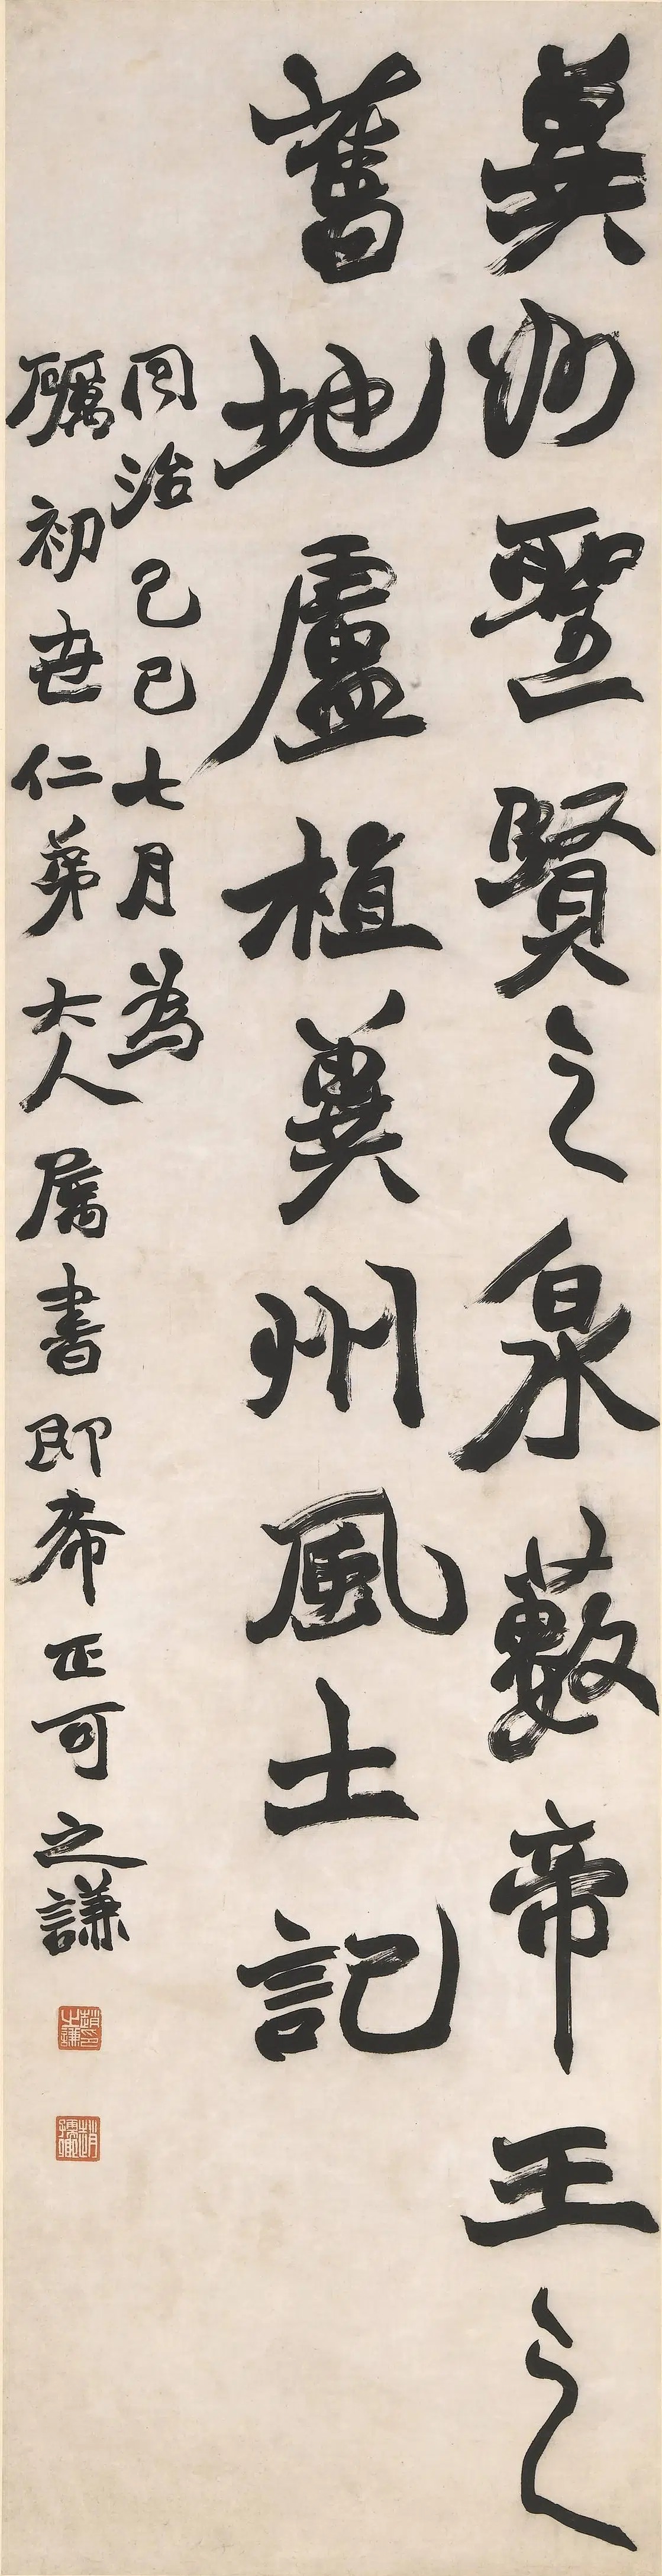 冀州聖賢之泉藪帝王之
舊地盧植冀州風土記
同治己巳七月為
礪初世仁弟大人屬書即希正可之謙
趙印之謙